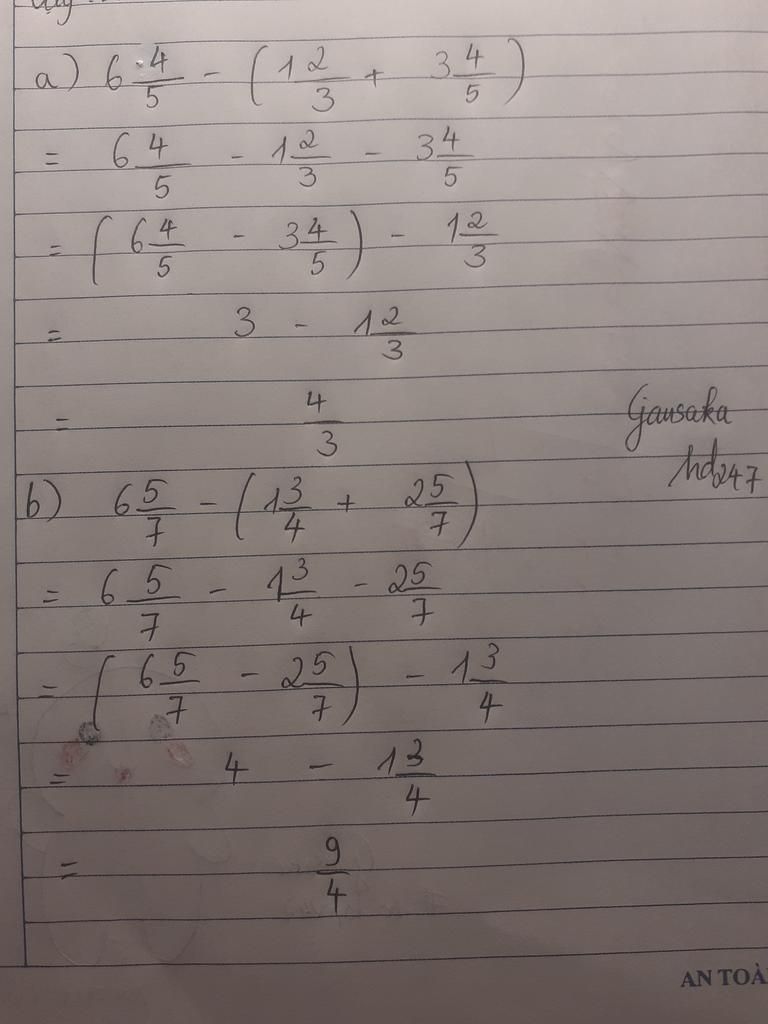 a) 6 4/5 - ( 1 2/3 + 3 4/5 )
= 6 4/5 - 1 2/3 - 3 4/5
= ( 6 4/5 - 3 4/5 ) - 1 2/3
= 3 - 1 2/3
= 4/3
Gausaka
hd247
b) 6 5/7 - ( 1 3/4 + 2 5/7 )
= 6 5/7 - 1 3/4 - 2 5/7
= ( 6 5/7 - 2 5/7 ) - 1 3/4
= 4 - 1 3/4
= 9/4
AN TOÀ